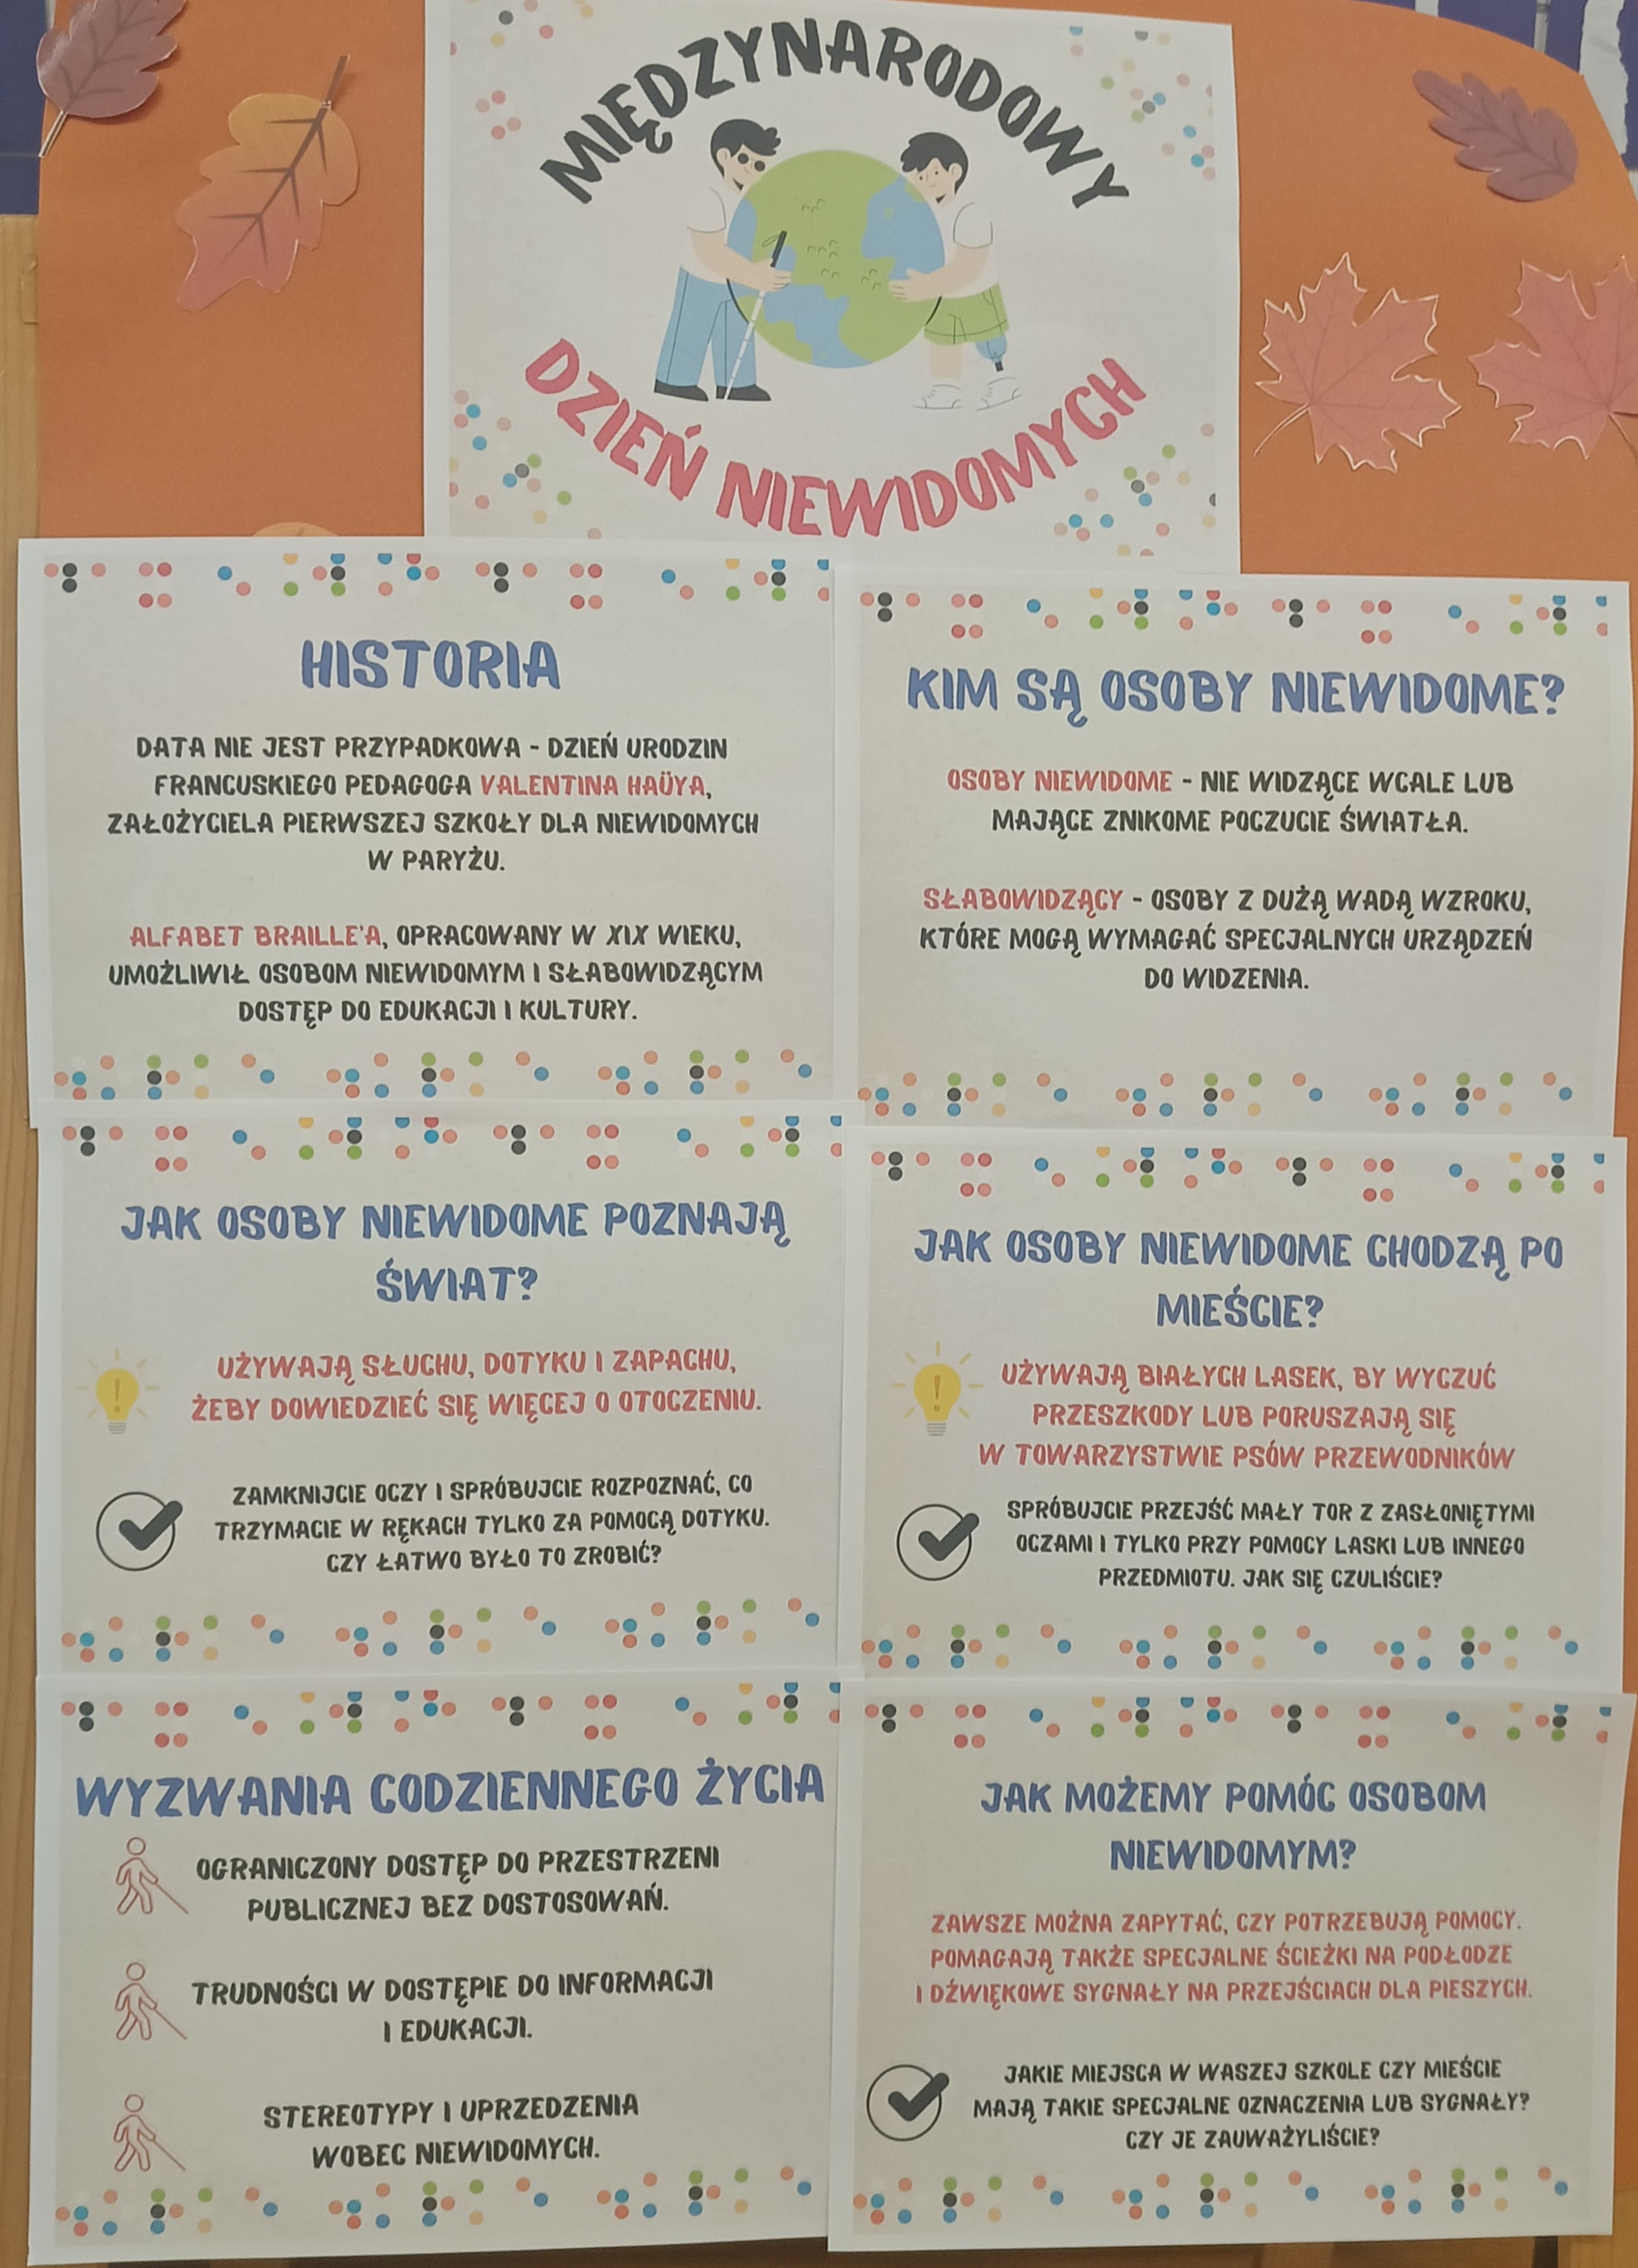 MIĘDZYNARODOWY
DZIEŃ NIEWIDOMYCH
HISTORIA
DATA NIE JEST PRZYPADKOWA - DZIEŃ URODZIN
FRANCUSKIEGO PEDAGOGA VALENTINA HAÜYA,
ZAŁOŻYCIELA PIERWSZEJ SZKOŁY DLA NIEWIDOMYCH
W PARYŻU.
ALFABET BRAILLE'A, OPRACOWANY W XIX WIEKU,
UMOŻLIWIŁ OSOBOM NIEWIDOMYM I SŁABOWIDZĄCYM
DOSTĘP DO EDUKACJI I KULTURY.
KIM SĄ OSOBY NIEWIDOME?
OSOBY NIEWIDOME - NIE WIDZĄCE WCALE LUB
MAJĄCE ZNIKOME POCZUCIE ŚWIATŁA.
SŁABOWIDZĄCY - OSOBY Z DUŻĄ WADĄ WZROKU,
KTÓRE MOGĄ WYMAGAĆ SPECJALNYCH URZĄDZEŃ
DO WIDZENIA.
JAK OSOBY NIEWIDOME POZNAJĄ
ŚWIAT?
UŻYWAJĄ SŁUCHU, DOTYKU I ZAPACHU,
ŻEBY DOWIEDZIEĆ SIĘ WIĘCEJ O OTOCZENIU.
ZAMKNIJCIE OCZY I SPRÓBUJCIE ROZPOZNAĆ, CO
TRZYMACIE W RĘKACH TYLKO ZA POMOCĄ DOTYKU.
CZY ŁATWO BYŁO TO ZROBIĆ?
JAK OSOBY NIEWIDOME CHODZĄ PO
MIEŚCIE?
UŻYWAJĄ BIAŁYCH LASEK, BY WYCZUĆ
PRZESZKODY LUB PORUSZAJĄ SIĘ
W TOWARZYSTWIE PSÓW PRZEWODNIKÓW
SPRÓBUJCIE PRZEJŚĆ MAŁY TOR Z ZASŁONIĘTYMI
OCZAMI I TYLKO PRZY POMOCY LASKI LUB INNEGO
PRZEDMIOTU. JAK SIĘ CZULIŚCIE?
WYZWANIA CODZIENNEGO ŻYCIA
OGRANICZONY DOSTĘP DO PRZESTRZENI
PUBLICZNEJ BEZ DOSTOSOWAŃ.
TRUDNOŚCI W DOSTĘPIE DO INFORMACJI
I EDUKACJI.
STEREOTYPY I UPRZEDZENIA
WOBEC NIEWIDOMYCH.
JAK MOŻEMY POMÓC OSOBOM
NIEWIDOMYM?
ZAWSZE MOŻNA ZAPYTAĆ, CZY POTRZEBUJĄ POMOCY.
POMAGAJĄ TAKŻE SPECJALNE ŚCIEŻKI NA PODŁODZE
I DŹWIĘKOWE SYGNAŁY NA PRZEJŚCIACH DLA PIESZYCH.
JAKIE MIEJSCA W WASZEJ SZKOLE CZY MIEŚCIE
MAJĄ TAKIE SPECJALNE OZNACZENIA LUB SYGNAŁY?
CZY JE ZAUWAŻYLIŚCIE?